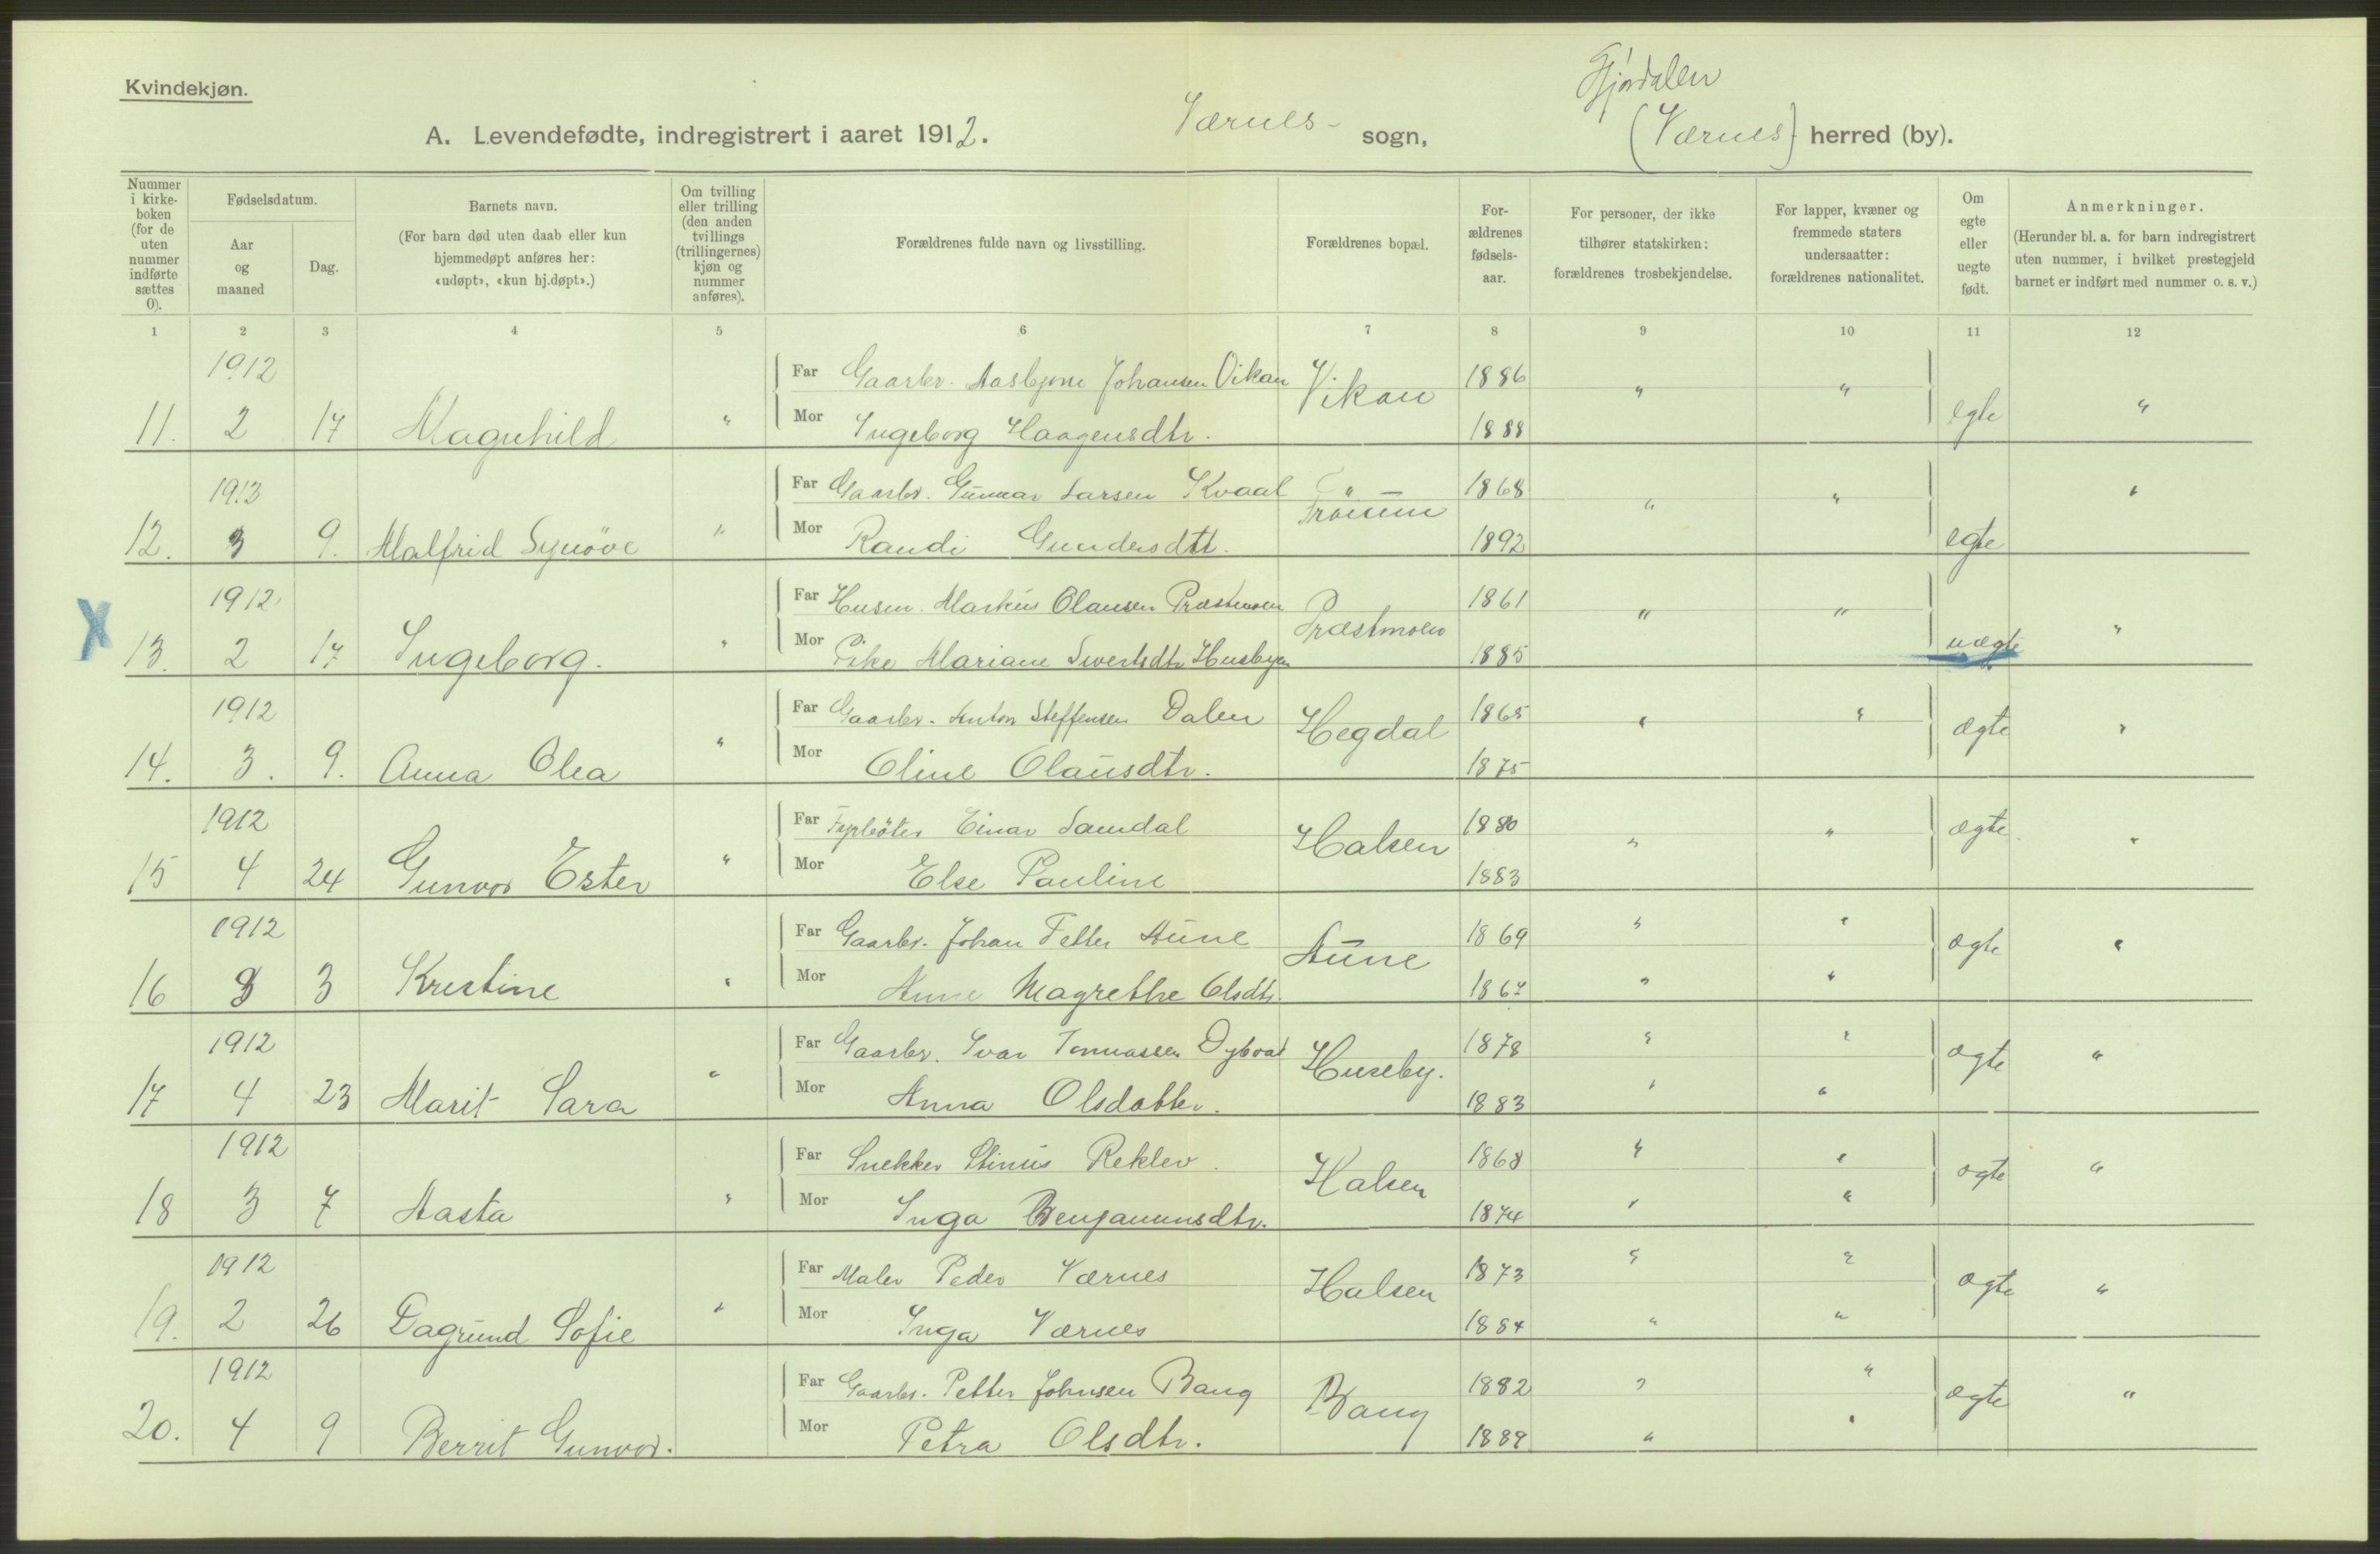 Kvindekjøn.
Stjørdalen
A. Levendefødte, indregistrert i aaret 1912. Værnes sogn, (Værnes) herred (by).
Nummer i kirkeboken (for de uten nummer indførte sættes 0).
Fødselsdatum.
Aar og maaned
Dag.
Barnets navn.
(For barn død uten daab eller kun hjemmedøpt anføres her: «udøpt», «kun hj.døpt».)
Om tvilling eller trilling (den anden tvillings (trillingernes) kjøn og nummer anføres).
Forældrenes fulde navn og livsstilling.
Forældrenes bopæl.
For-ældrenes fødsels-aar.
For personer, der ikke tilhører statskirken: forældrenes trosbekjendelse.
For lapper, kvæner og fremmede staters undersaatter: forældrenes nationalitet.
Om egte eller uegte født.
Anmerkninger.
(Herunder bl. a. for barn indregistrert uten nummer, i hvilket prestegjeld barnet er indført med nummer o. s. v.)
1 2 3 4 5 6 7 8 9 10 11 12
1912 Far Gaarbr. Aasbjørn Johansen Vikan Vikan 1886 " "
11. 2 17 Magnhild " Mor Ingeborg Haagensdtr. 1888 egte "
1913 Far Gaarbr. Gunnar Larsen Kvaal 1868 " " "
12. 3 9. Malfrid Synöve " Mor Randi Gundersdtt. 1892 egte
1912 Far Husm. Markus Olausen Præstmoen Præstmoen 1861 " "
X 13. 2 17 Ingeborg. " Mor Pike Mariane Sivertsdtr Husbyen 1885 uægte "
1912 Far Gaarbr. Anton Steffensen Dalen Hegdal 1865 " "
14. 3. 9. Anna Olea " Mor Oline Olausdtr. 1875 ægte "
1912 Far Fyrbøter Einar Samdal Halsen 1880 " " ægte
15 4 24 Gunvor Ester " Mor Else Pauline 1883 "
1912 Far Gaarbr. Johan Petter Aune Aune 1869 " " ægte "
16 3 3 Kristine " Mor Anne Magrethe Olsdtr. 1867 " "
1912 Far Gaarbr. Ivar Tomassen Dybvad Huseby. 1878 " " ægte "
17 4 23 Marit Sara " Mor Anna Olsdatter. 1883 " "
1912 Far Snekker Stinius Reklev. Halsen 1868 " " ægte "
18 3 7 Aasta " Mor Inga Benjaminsdtr. 1874 " "
1912 Far Maler Peder Værnes Halsen 1873 " " ægte "
19. 2 26 Dagrund Sofie " Mor Inga Værnes 1884 " "
1912 Far Gaarbr. Petter Johnsen Bang Bang 1882 " " ægte "
20. 4 9 Berrit Gunvor. Mor Petra Olsdtr. 1889 " "